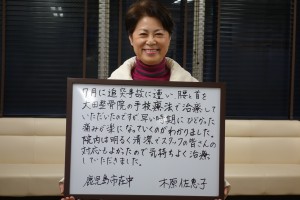 7月に追突事故に遭い、腰と首を
太田整骨院の手技療法で治療して
いただいたのですが、早い時期に、ひどかった
痛みが楽になっていくのがわかりました。
院内は明るく清潔でスタッフの皆さんの
対応もよかったので気持ちよく治療
していただきました。
鹿児島市在中 木原佐恵子